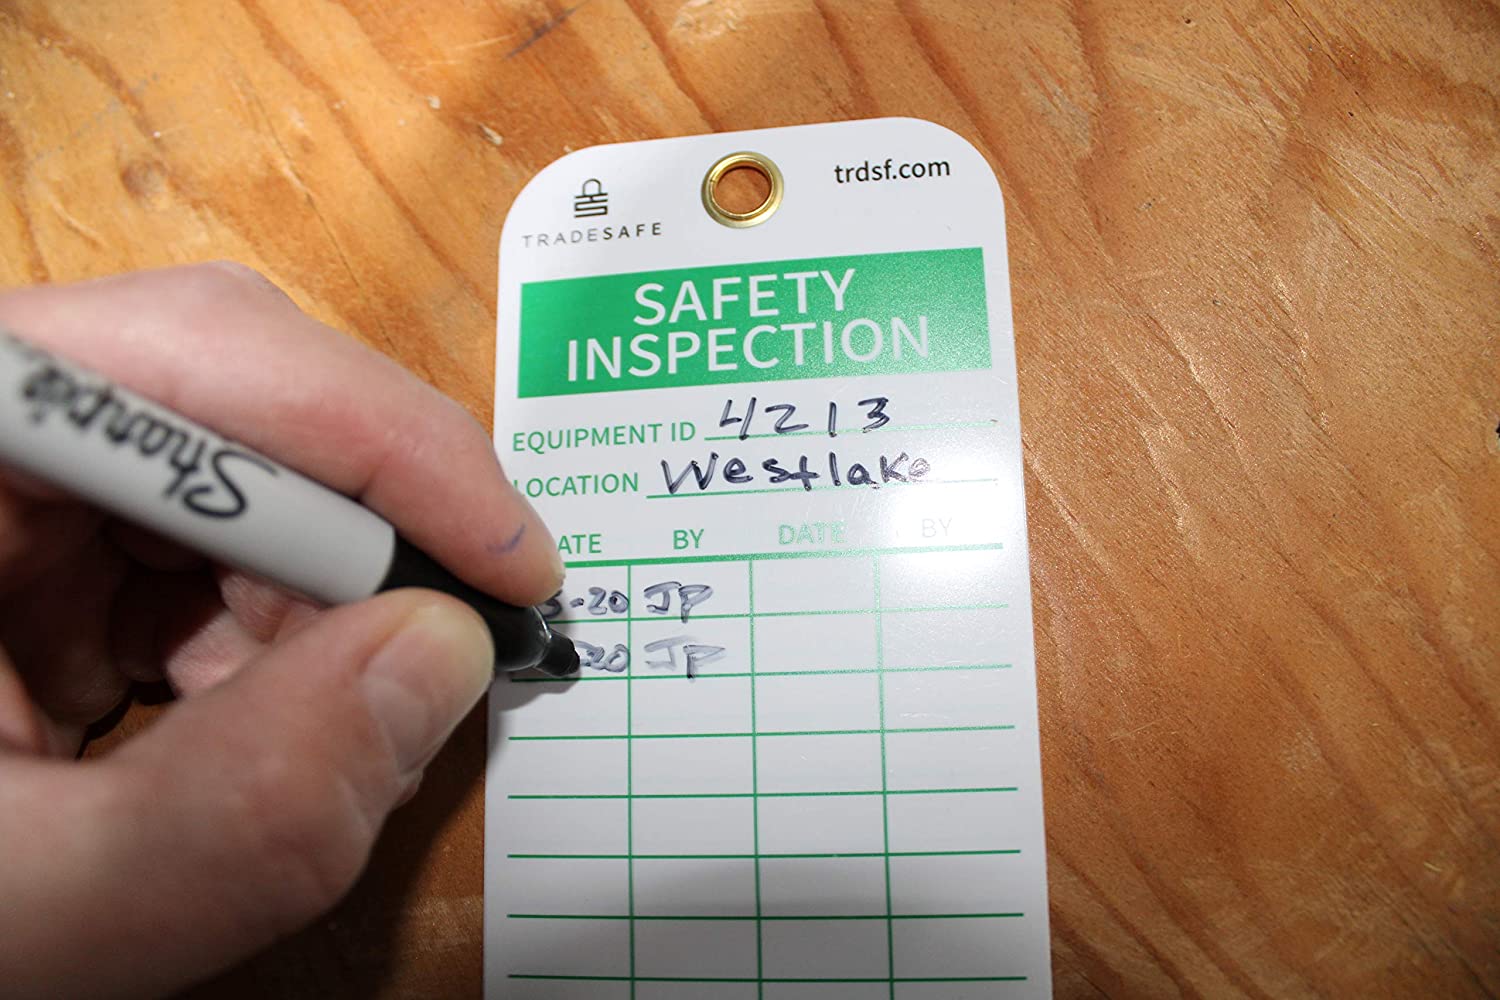 trdsf.com
TRADESAFE
SAFETY
INSPECTION
EQUIPMENT ID 4213
LOCATION Westlake
ATE BY DATE BY
3-20 JP
20 JP
Sharpie